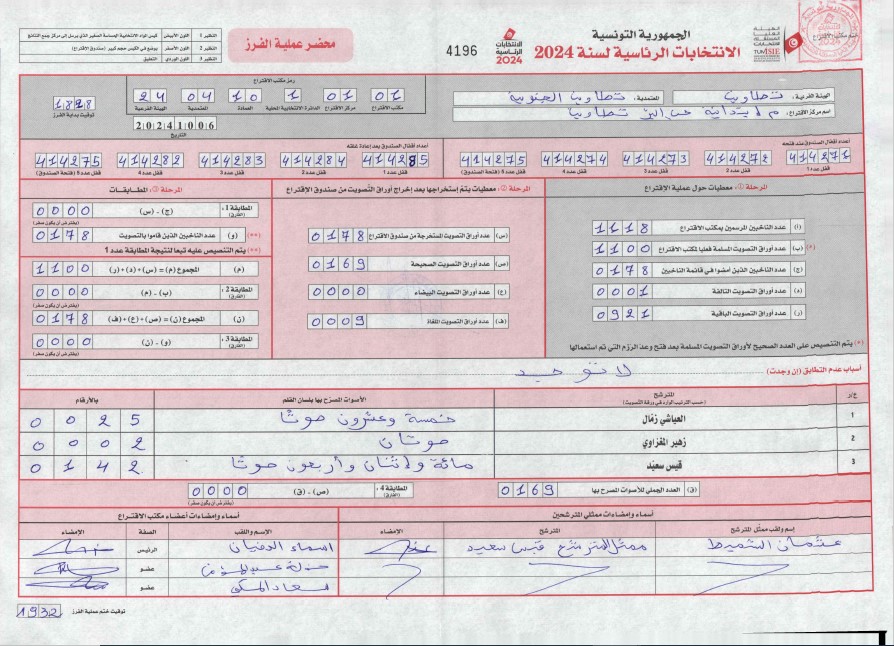 الجمهورية التونسية
الانتخابات الرئاسية لسنة 2024
الهيئة العليا المستقلة للانتخابات
TUNISIE
ختم مكتب الاقتراع
الانتخابات الرئاسية 2024
4196
محضر عملية الفرز
النظير 1 اللون الأبيض
النظير 2 اللون الأصفر
النظير 3 اللون الوردي التعليق
الهيئة الفرعية: تطاوين المعتمدية: تطاوين الجنوبية
اسم مركز الاقتراع:
رمز مكتب الاقتراع
01 01 1 10 04 24
مكتب الاقتراع مركز الاقتراع الدائرة الانتخابية المحلية العمادة المعتمدية الهيئة الفرعية
20241006
التاريخ
1828
توقيت بداية الفرز
أعداد أقفال الصندوق عند فتحه
414271 414272 414273 414274 414275
قفل عدد 1 قفل عدد 2 قفل عدد 3 قفل عدد 4 قفل عدد 5 (فتحة الصندوق)
أعداد أقفال الصندوق بعد إعادة غلقه
414285 414284 414283 414282 414275
قفل عدد 1 قفل عدد 2 قفل عدد 3 قفل عدد 4 قفل عدد 5 (فتحة الصندوق)
مرحلة 1: معطيات حول عملية الاقتراع
(أ) عدد الناخبين المرسمين بمكتب الاقتراع 1118
(*) (ب) عدد أوراق التصويت المسلمة فعليا لمكتب الاقتراع 1100
(ج) عدد الناخبين الذين أمضوا في قائمة الناخبين 0178
(د) عدد أوراق التصويت التالفة 0001
(ر) عدد أوراق التصويت الباقية 0921
(*) يتم التنصيص على العدد الصحيح لأوراق التصويت المسلمة بعد فتح وعد الرزم التي تم استعمالها
مرحلة 2: معطيات يتم إستخراجها بعد إخراج أوراق التصويت من صندوق الاقتراع
(س) عدد أوراق التصويت المستخرجة من صندوق الاقتراع 0178
(ص) عدد أوراق التصويت الصحيحة 0169
(ع) عدد أوراق التصويت البيضاء 0000
(ف) عدد أوراق التصويت الملغاة 0009
مرحلة 3: المطابقات
المطابقة 1: (الفارق) (ج) - (س) 0000
(يفترض أن يكون صفر)
(**) (و) عدد الناخبين الذين قاموا بالتصويت 0178
(**) يتم التنصيص عليه تبعا لنتيجة المطابقة عدد 1
(م) المجموع (م) = (س)+(د)+(ر) 1100
المطابقة 2: (الفارق) (ب) - (م) 0000
(يفترض أن يكون صفر)
(ن) المجموع (ن) = (ص)+(ع)+(ف) 0178
المطابقة 3: (الفارق) (و) - (ن) 0000
(يفترض أن يكون صفر)
أسباب عدم التطابق (إن وجدت) لا توجد
ع/ر المترشح الأصوات المصرح بها بلسان القلم بالأرقام
(حسب الترتيب الوارد في ورقة التصويت)
1 العياشي زمّال خمسة وعشرون صوتا 0025
2 زهير المغزاوي صوتان 0002
3 قيس سعيّد مائة واثنان وأربعون صوتا 0142
(ق) العدد الجملي للأصوات المصرح بها 0169
المطابقة 4: (الفارق) (ص) - (ق) 0000
(يفترض أن يكون صفر)
أسماء وإمضاءات ممثلي المترشحين
إسم ولقب ممثل المترشح المترشح الإمضاء
عثمان الشميط ممثل المترشح قيس سعيد
أسماء وإمضاءات أعضاء مكتب الاقتراع
الإسم واللقب الصفة الإمضاء
اسماء الرئيس
عضو
سعاد عضو
توقيت ختم عملية الفرز 1932